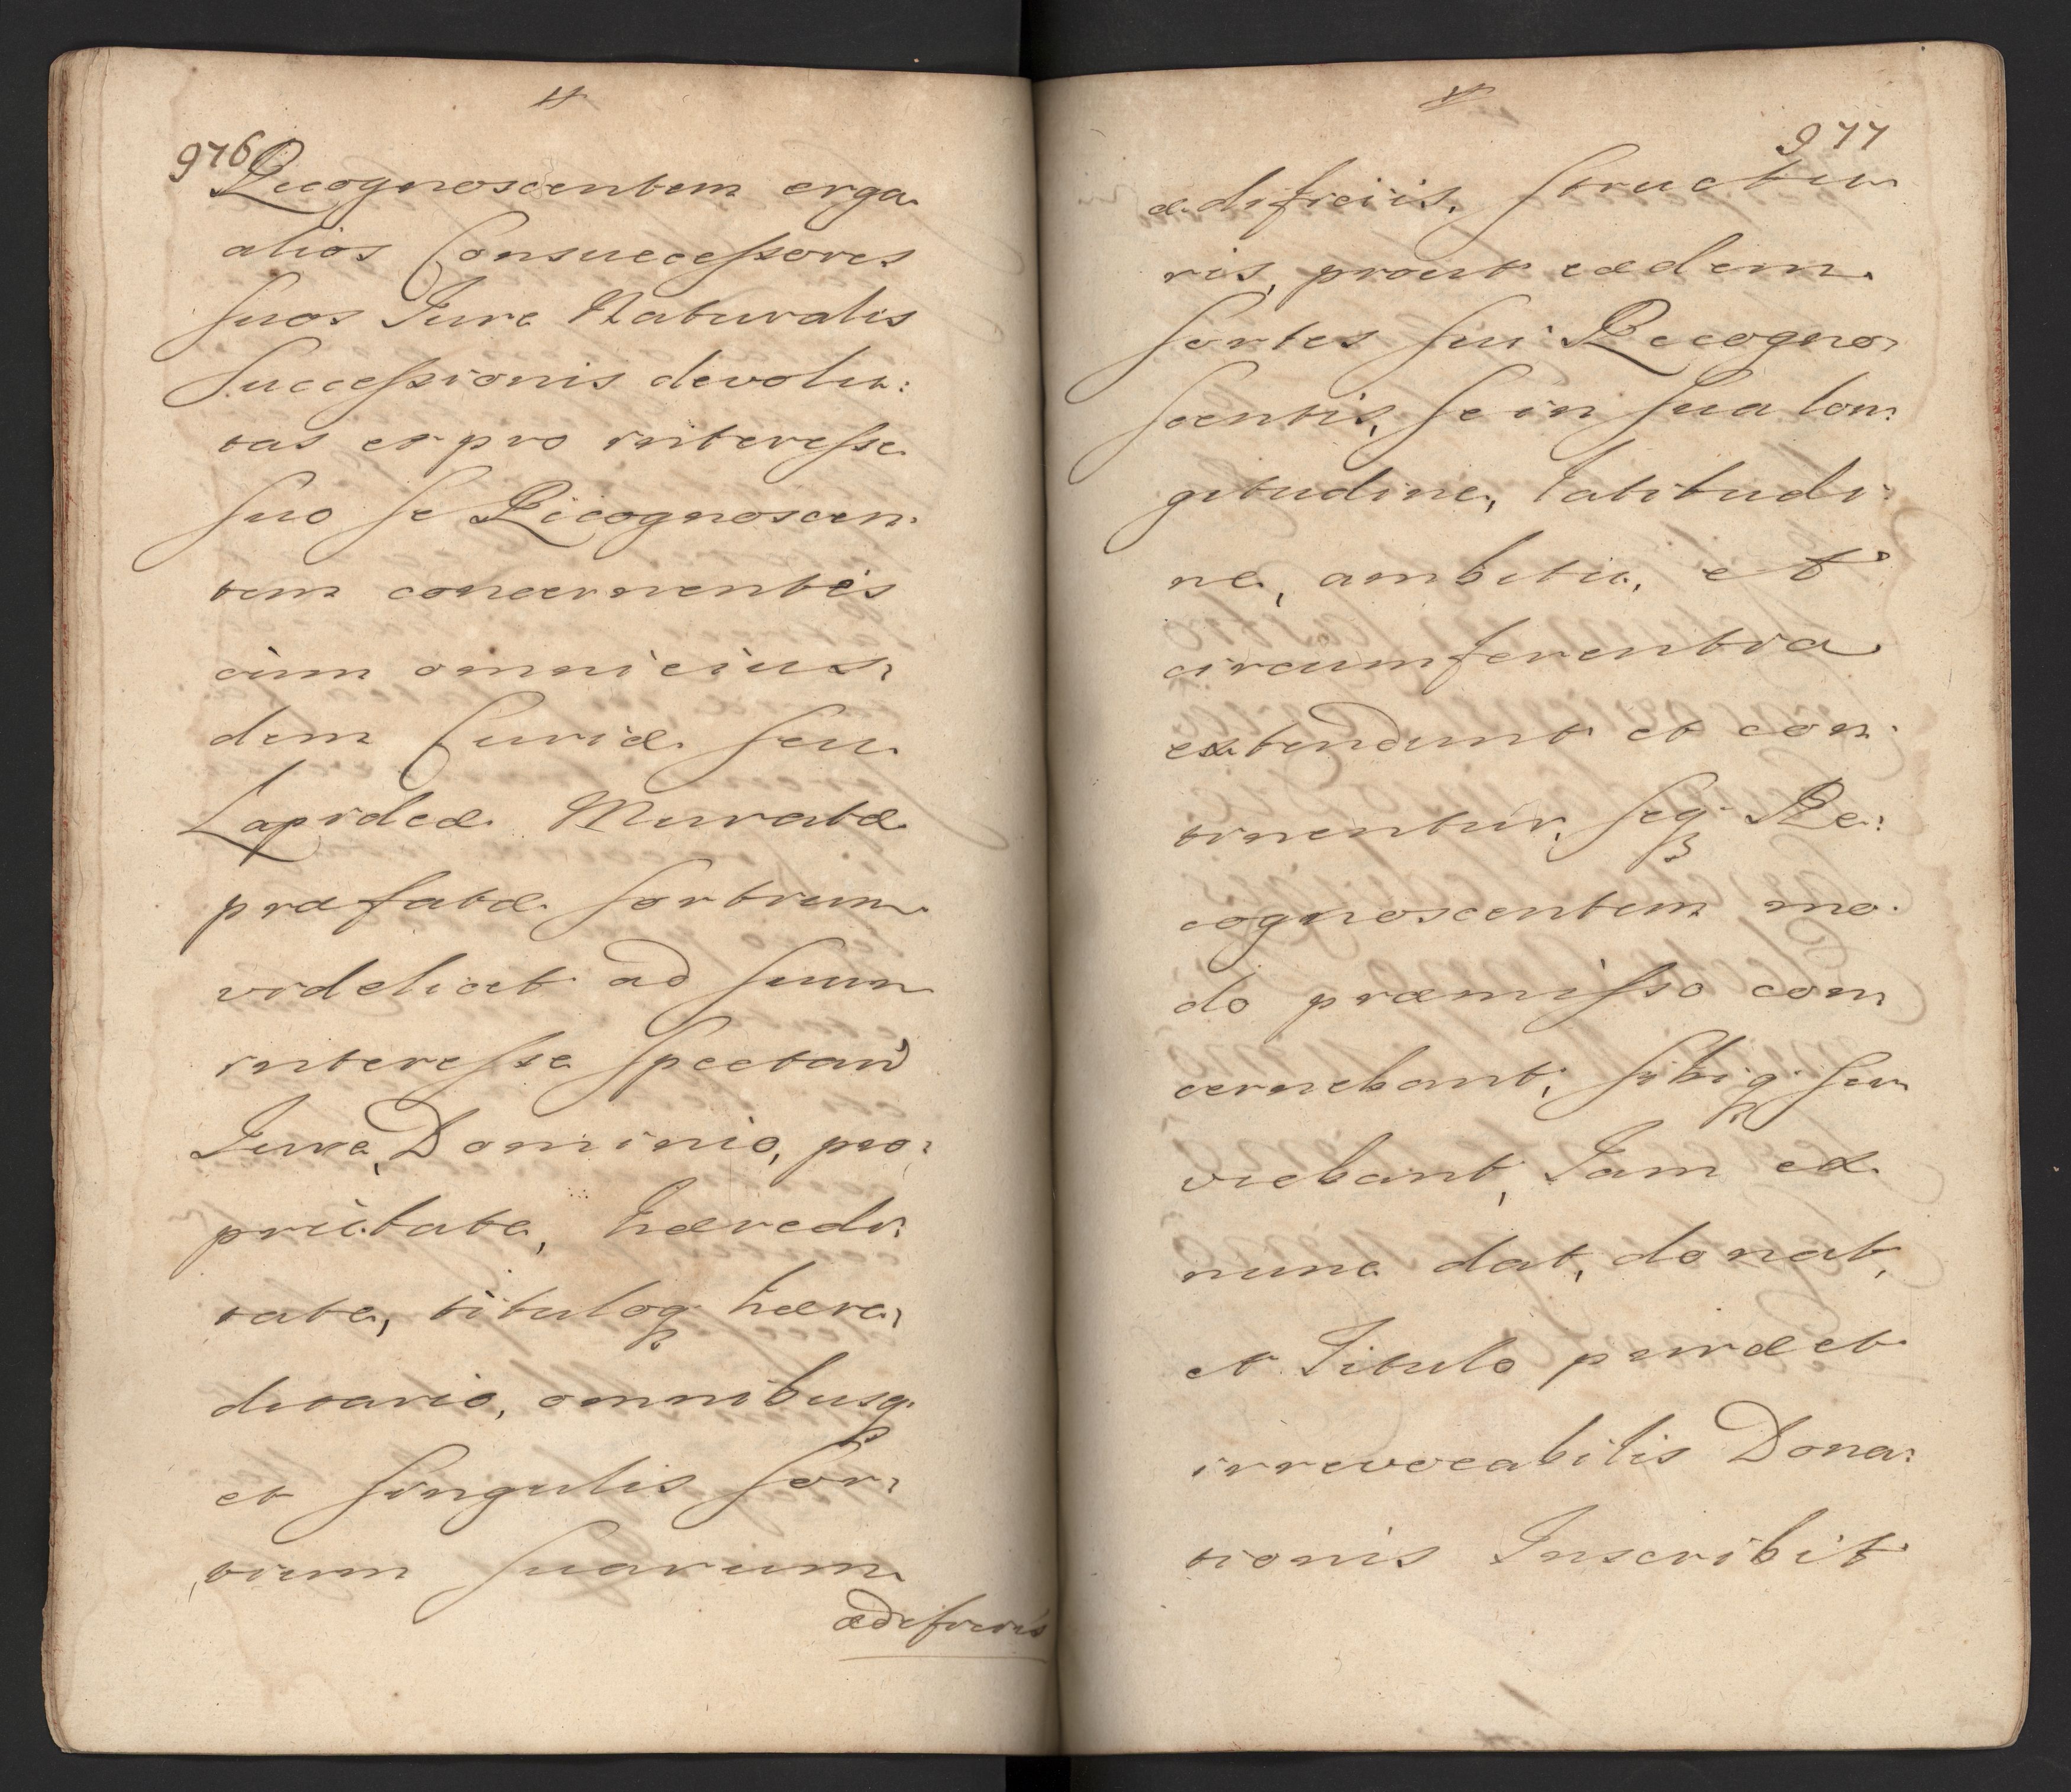 976
Recognoscentem erga
alios Consuccessores
suos Jure Naturalis
Successionis devolu:
tas et pro interesse
suo se Recognoscen:
tem concernentes
cum omni eius:
dem Curiæ seu
Lapideæ Muratæ
præfatæ sortium
videlicet ad suum
interesse spectan
Jure, Dominio, pro:
prietate, hæredi:
tate, tituloq hære:
ditario, omnibusq
et singulis sor:
tium suarum
ædificiis
977
ædificiis, structu
ris, prout eædem
sortes sui Recogno:
scentis, se in sua lon:
gitudine, latitudi:
ne, ambitu, et
circumferentia
extendunt et con:
tinentur, seq Re:
cognoscentem mo:
do præmisso con:
cernebant, sibiq ser
viebant, Jam ex
nunc dat, donat,
et Titulo puræ et
irrevocabilis Dona:
tionis Inscribit